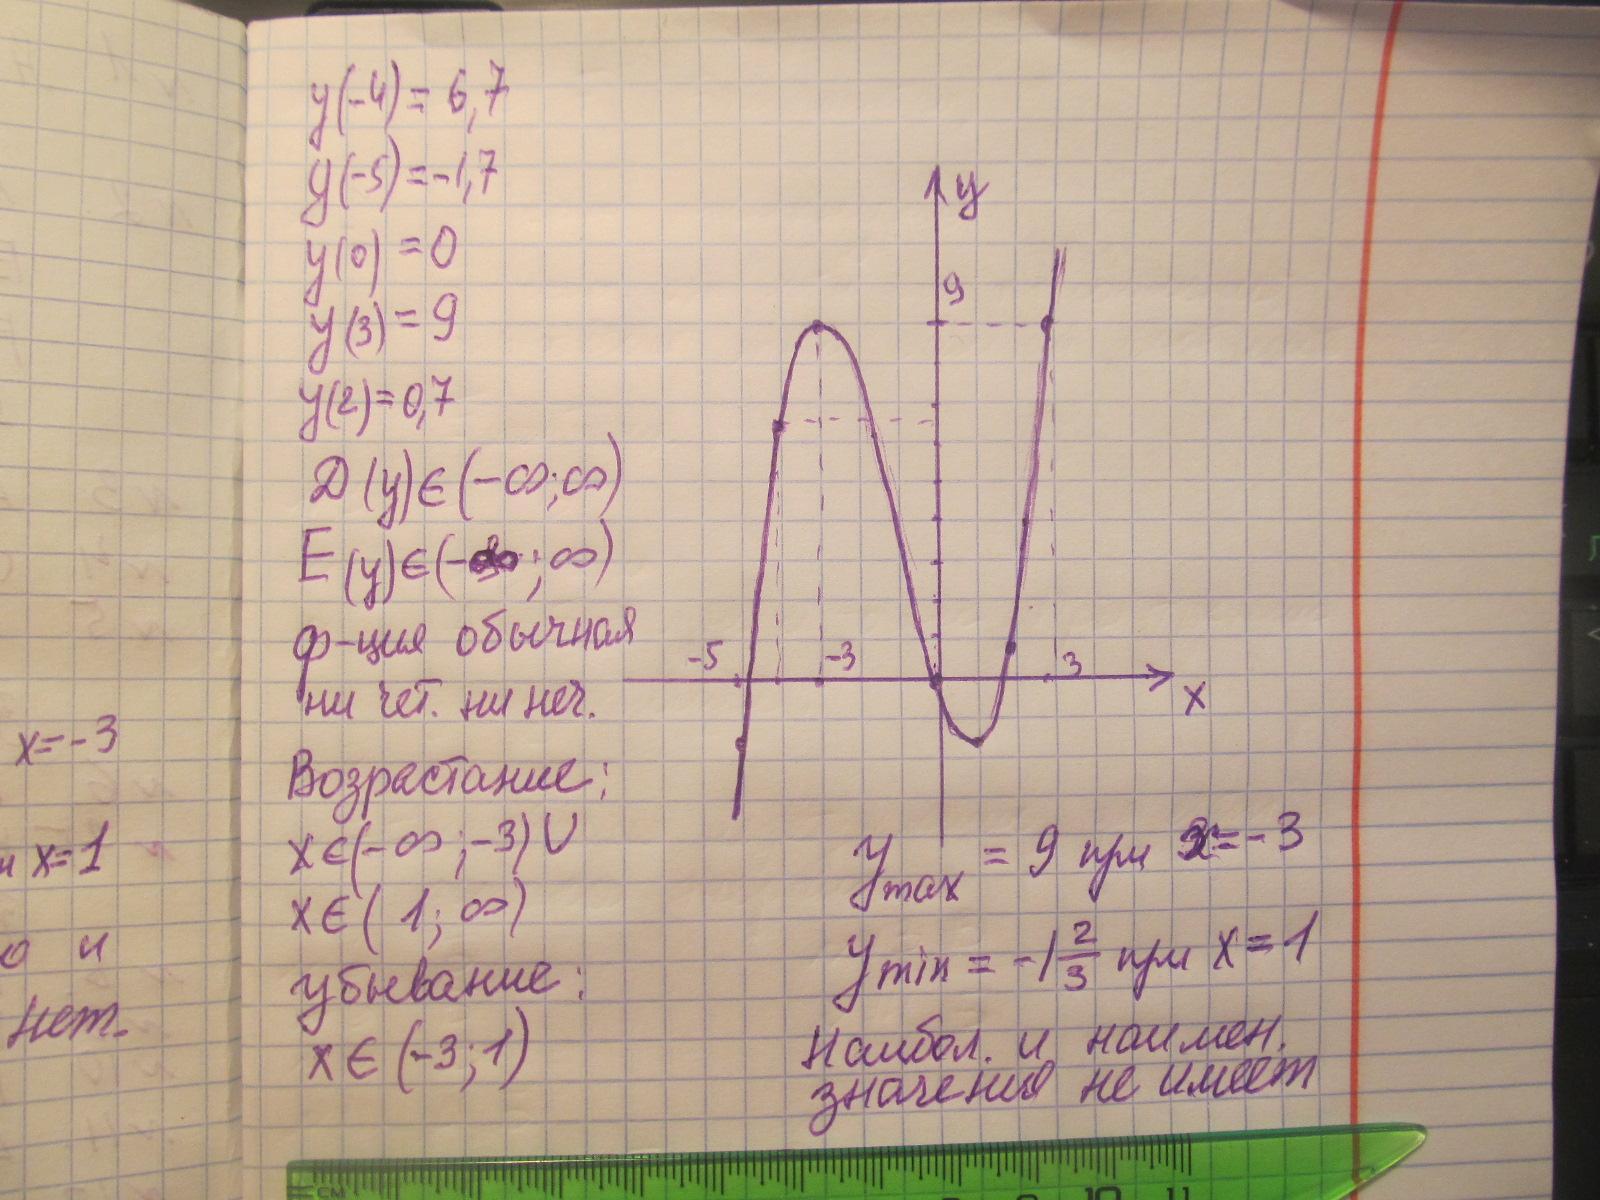 y(-4) = 6,7
y(-5) = -1,7
y(0) = 0
y(3) = 9
y(2) = 0,7
D(y)∈(-∞;∞)
E(y)∈(-∞;∞)
ф-ция обычная
ни чет. ни неч.
Возрастание:
x∈(-∞;-3)∪
x∈(1;∞)
убывание:
x∈(-3;1)
y
9
-5
-3
3
x
ymax = 9 при x=-3
ymin = -1 2/3 при x=1
Наибол. и наимен.
значения не имеет
x=-3
и x=1
о и
нет.
см
10
11